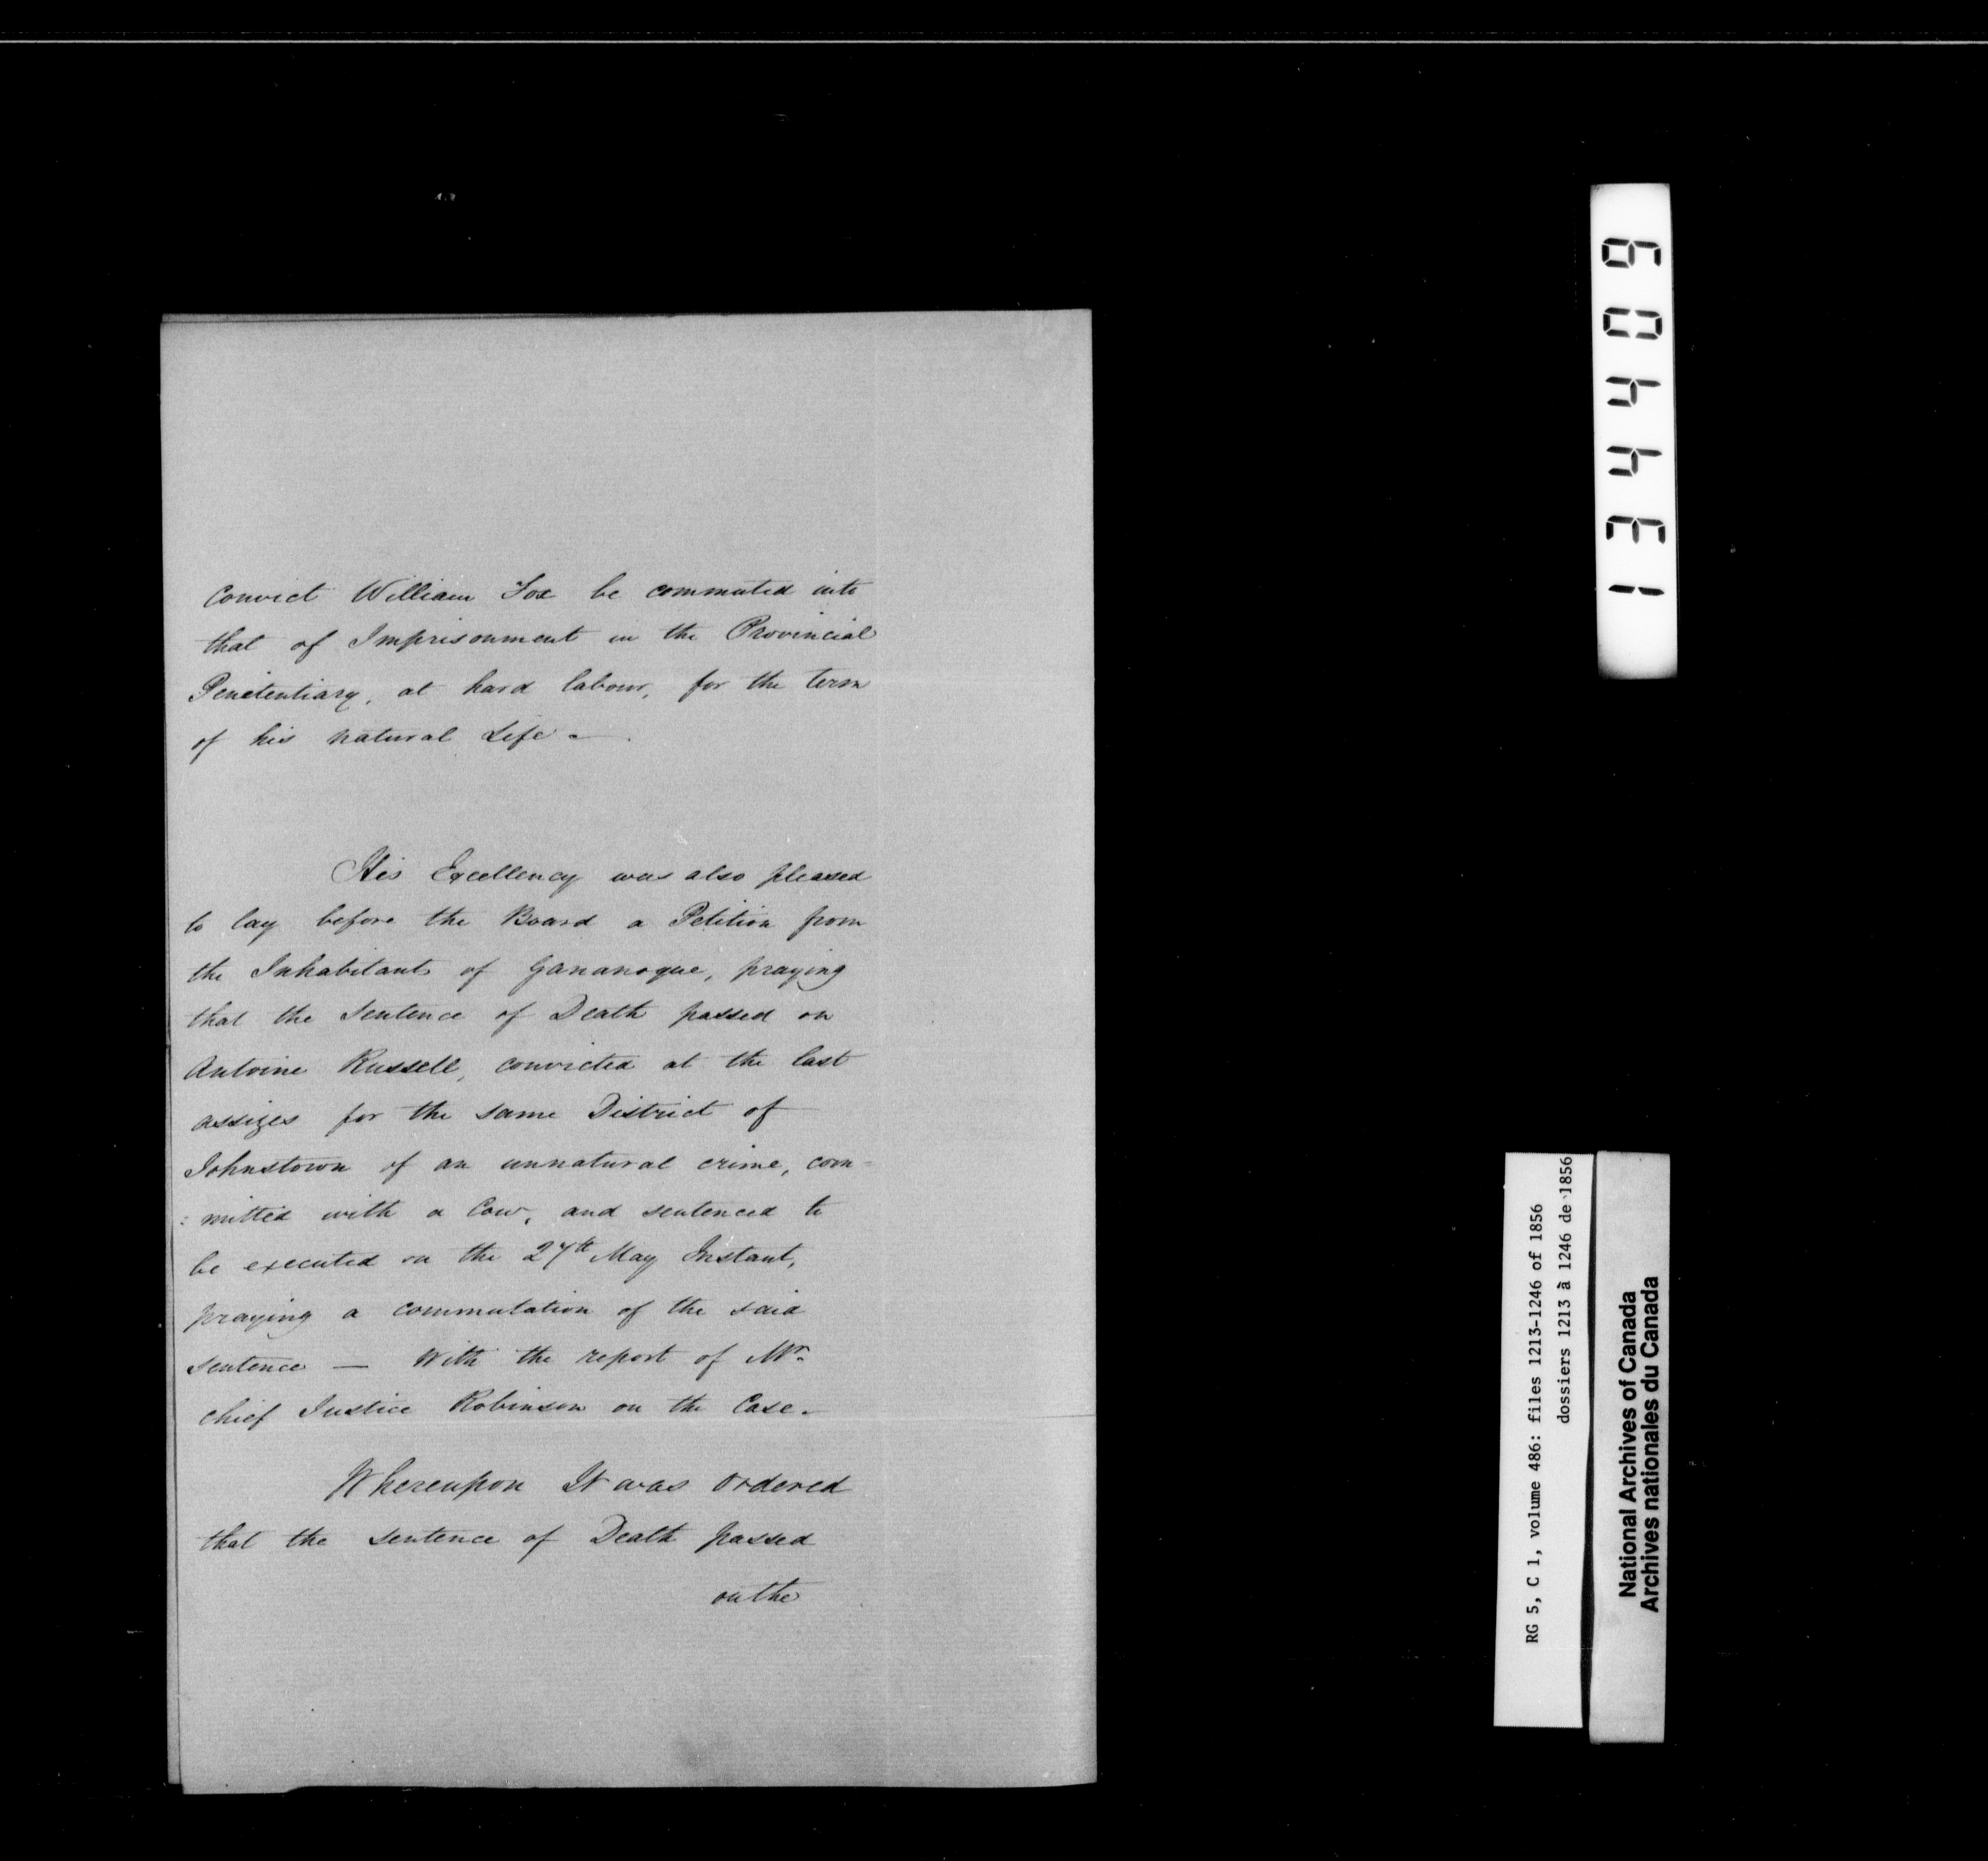 Convict William Fox be commuted into
that of Imprisonment in the Provincial
Penitentiary, at hard labour, for the term
of his natural Life -
His Excellency was also pleased
to lay before the Board a Petition from
the Inhabitants of Gananoque, praying
that the Sentence of Death passed on
Antoine Russell, convicted at the last
assizes for the same District of
Johnstown of an unnatural crime, com=
: mitted with a Cow, and sentenced to
be executed on the 27th May Instant,
praying a commutation of the said
sentence — With the report of Mr.
Chief Justice Robinson on the Case.
Whereupon It was Ordered
that the sentence of Death passed
on the
134409
RG 5, C 1, volume 486: files 1213-1246 of 1856
dossiers 1213 à 1246 de 1856
National Archives of Canada
Archives nationales du Canada